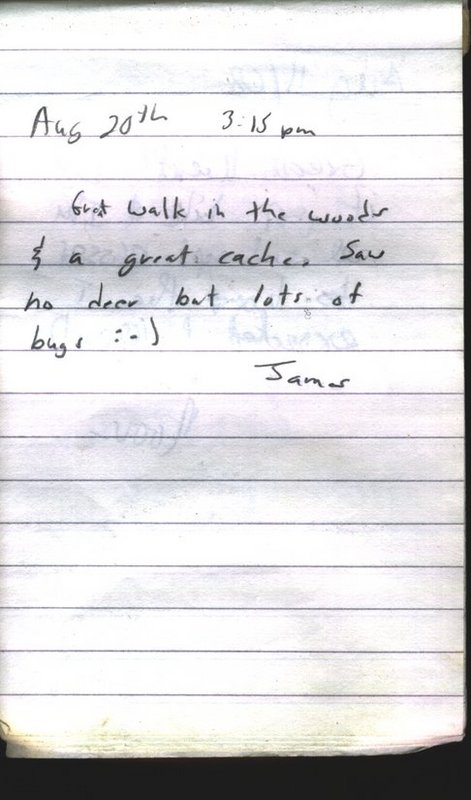 Aug 20th 3:15 pm
Great walk in the woods
& a great cache. Saw
no deer but lots of
bugs :-)
James